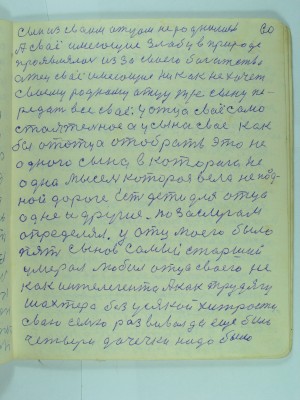 80
сын из своим отцом не роднился
А своё имеющие злобу в природе
проявлялся из за своего богатства
отец своё имеющие ни как не хочет
своему родному отцу уже сыну пе-
редать все своё. у отца своё само
стоятельное а у сына свое как
бы от отца отобрать это не
одного сына в которого не
одна мысль которая вела не по од-
ной дороге Есть дети для отца
одне и другие. по заслугам
определял. у отца моего было
пять сынов Самый старший
умерал любил отца своего не
как интелегента А как трудягу
шахтера без усякой хитрости
сваю семю развивал да ещё было
четверо дочечки надо было